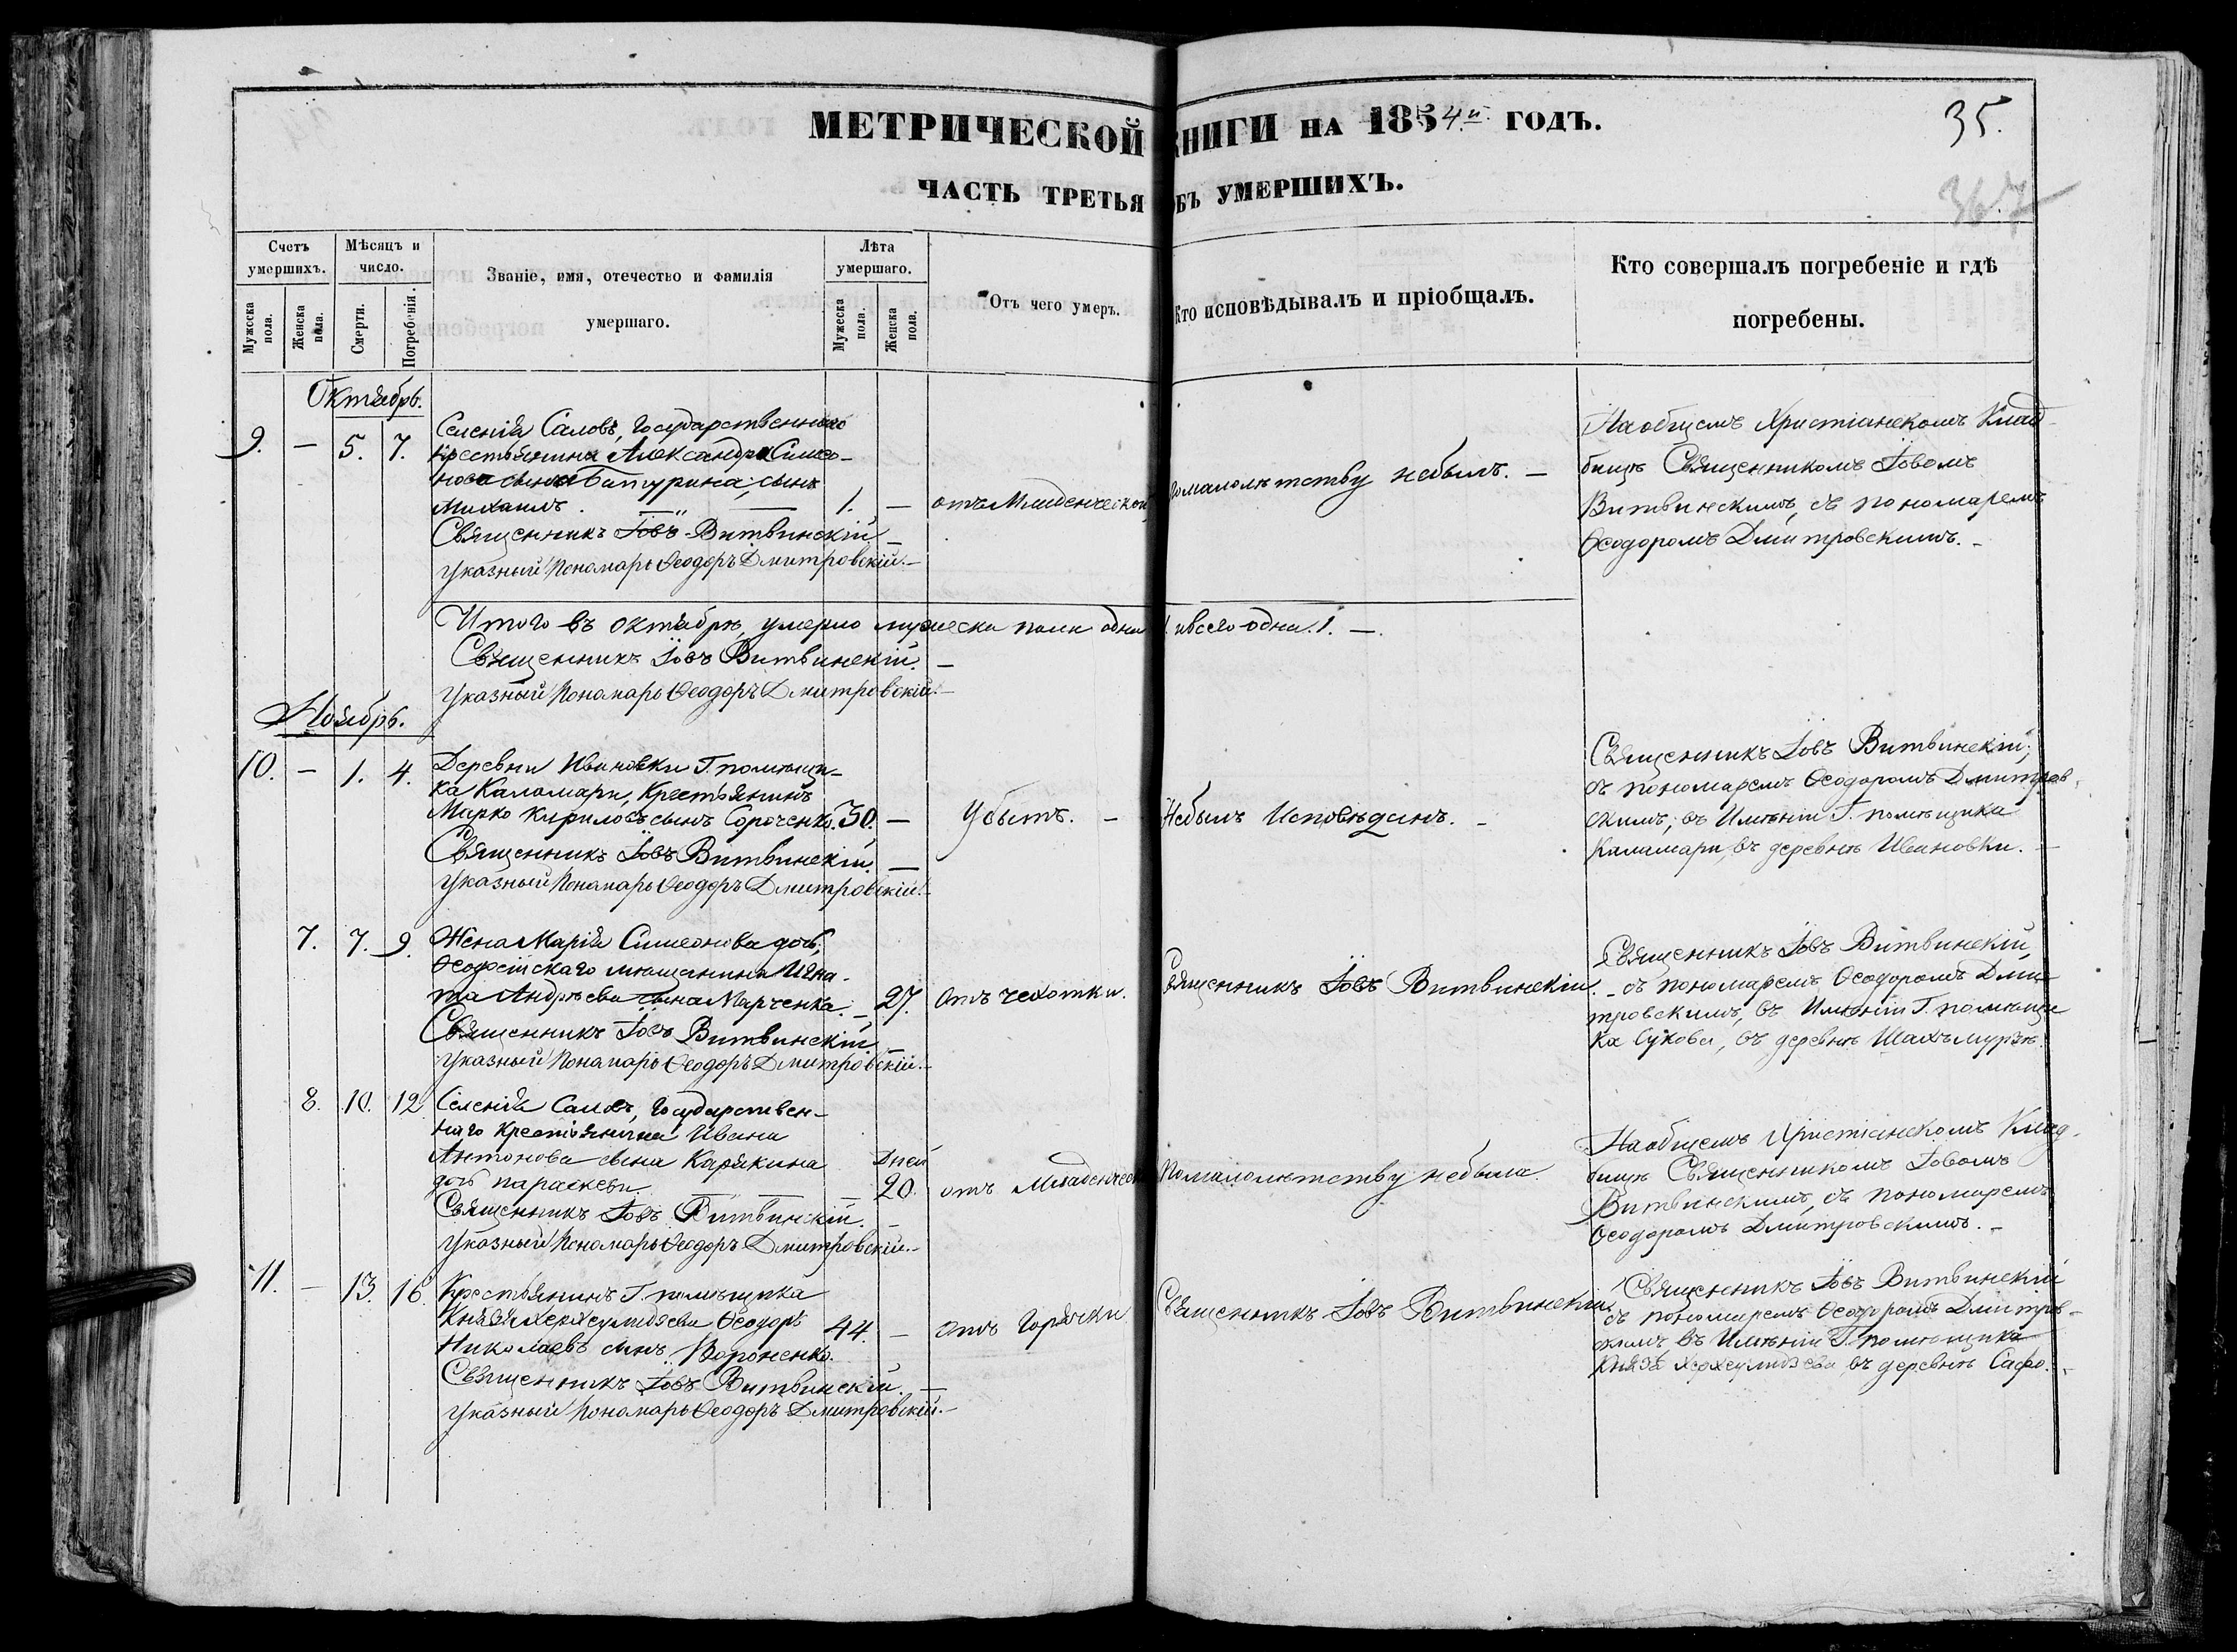 МЕТРИЧЕСКОЙ КНИГИ НА 1854.й ГОДЪ.
35.
367
ЧАСТЬ ТРЕТЬЯ ОБЪ УМЕРШИХЪ.
Счетъ умершихъ.
Мужеска пола.
Женска пола.
Мѣсяцъ и число.
Смерти.
Погребенія.
Званіе, имя, отечество и фамилія
умершаго.
Лѣта умершаго.
Мужеска пола.
Женска пола.
Отъ чего умеръ.
Кто исповѣдывалъ и пріобщалъ.
Кто совершалъ погребеніе и гдѣ
погребены.
Октябрь.
9. — 5. 7.
Селенія Саловъ, Государственнаго
крестьянина Александра Симео-
нова сына Батурина, сынъ
Михаилъ. — — 1. — отъ Младенческой
Помалолѣтству небылъ. —
На общемъ Христіанскомъ Клад-
бищѣ Священникомъ Іовомъ
Витвинскимъ, съ пономаремъ
Ѳеодоромъ Дмитровскимъ. —
Священникъ Іовъ Витвинскій —
Указный Пономарь Ѳеодоръ Дмитровскій. —
Итого въ октябрѣ, умерло мужеска пола одна 1. ивсего одна. 1. —
Священникъ Іовъ Витвинскій. —
Указный Пономарь Ѳеодоръ Дмитровскій. —
Ноябрь.
10. — 1. 4.
Деревни Ивановки Г. помѣщи-
ка Каламари, Крестьянинъ
Марко Кириловъ сынъ Сороченко. 30. — Убитъ. —
Небылъ Исповѣданъ. —
Священникъ Іовъ Витвинскій,
съ пономаремъ Ѳеодоромъ Дмитров-
скимъ, въ Имѣніи Г. помѣщика
Каламари, въ деревнѣ Ивановки. —
Священникъ Іовъ Витвинскій —
Указный Пономарь Ѳеодоръ Дмитровскій. —
7. 7. 9.
Жена Марія Симеонова дочь,
Ѳеодосійскаго мѣщанина Игна-
та Андрѣева сына Марченка. — 27. отъ чехотки.
Священникъ Іовъ Витвинскій. —
Священникъ Іовъ Витвинскій,
съ пономаремъ Ѳеодоромъ Дми-
тровскимъ, въ Имѣніи Г. помѣщи-
ка Сукова, въ деревнѣ Шахъ мурзѣ.
Священникъ Іовъ Витвинскій —
Указный Пономарь Ѳеодоръ Дмитровскій. —
8. 10. 12.
Селенія Саловъ, Государствен-
наго крестьянина Ивана
Антонова сына Карякина
дочь параскеви. — — — Дней 20. отъ Младенческой
Помалолѣтству небыла.
На общемъ Христіанскомъ Клад-
бищѣ Священникомъ Іовомъ
Витвинскимъ, съ пономаремъ
Ѳеодоромъ Дмитровскимъ. —
Священникъ Іовъ Витвинскій. —
Указный Пономарь Ѳеодоръ Дмитровскій. —
11. — 13. 16.
Крестьянинъ Г. помѣщика
Князя Херхеулидзева Ѳеодоръ
Николаевъ сынъ Вороненко. 44. — отъ Горячки
Священникъ Іовъ Витвинскій
Священникъ Іовъ Витвинскій
съ пономаремъ Ѳеодоромъ Дмитров-
скимъ, въ Имѣніи Г. помѣщика
Князя Херхеулидзева въ деревнѣ Сафо. —
Священникъ Іовъ Витвинскій. —
Указный Пономарь Ѳеодоръ Дмитровскій. —